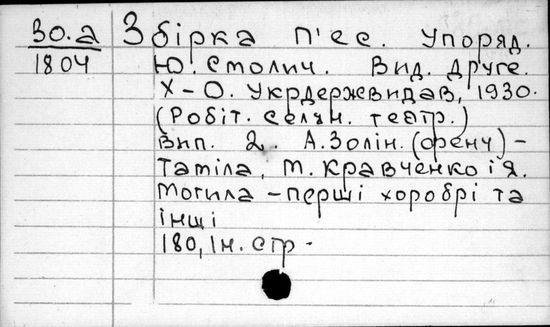 30.а
1804
Збірка п'єс. Упоряд.
Ю. Смолич. Вид. друге.
Х-О. Укрдержвидав, 1930.
(Робіт. селян. театр.)
Вип. 2. А. Золін. (френч) -
Таміла, М. Кравченко і Я.
Могила - перші хоробрі та
інші
180, Ін. стр.